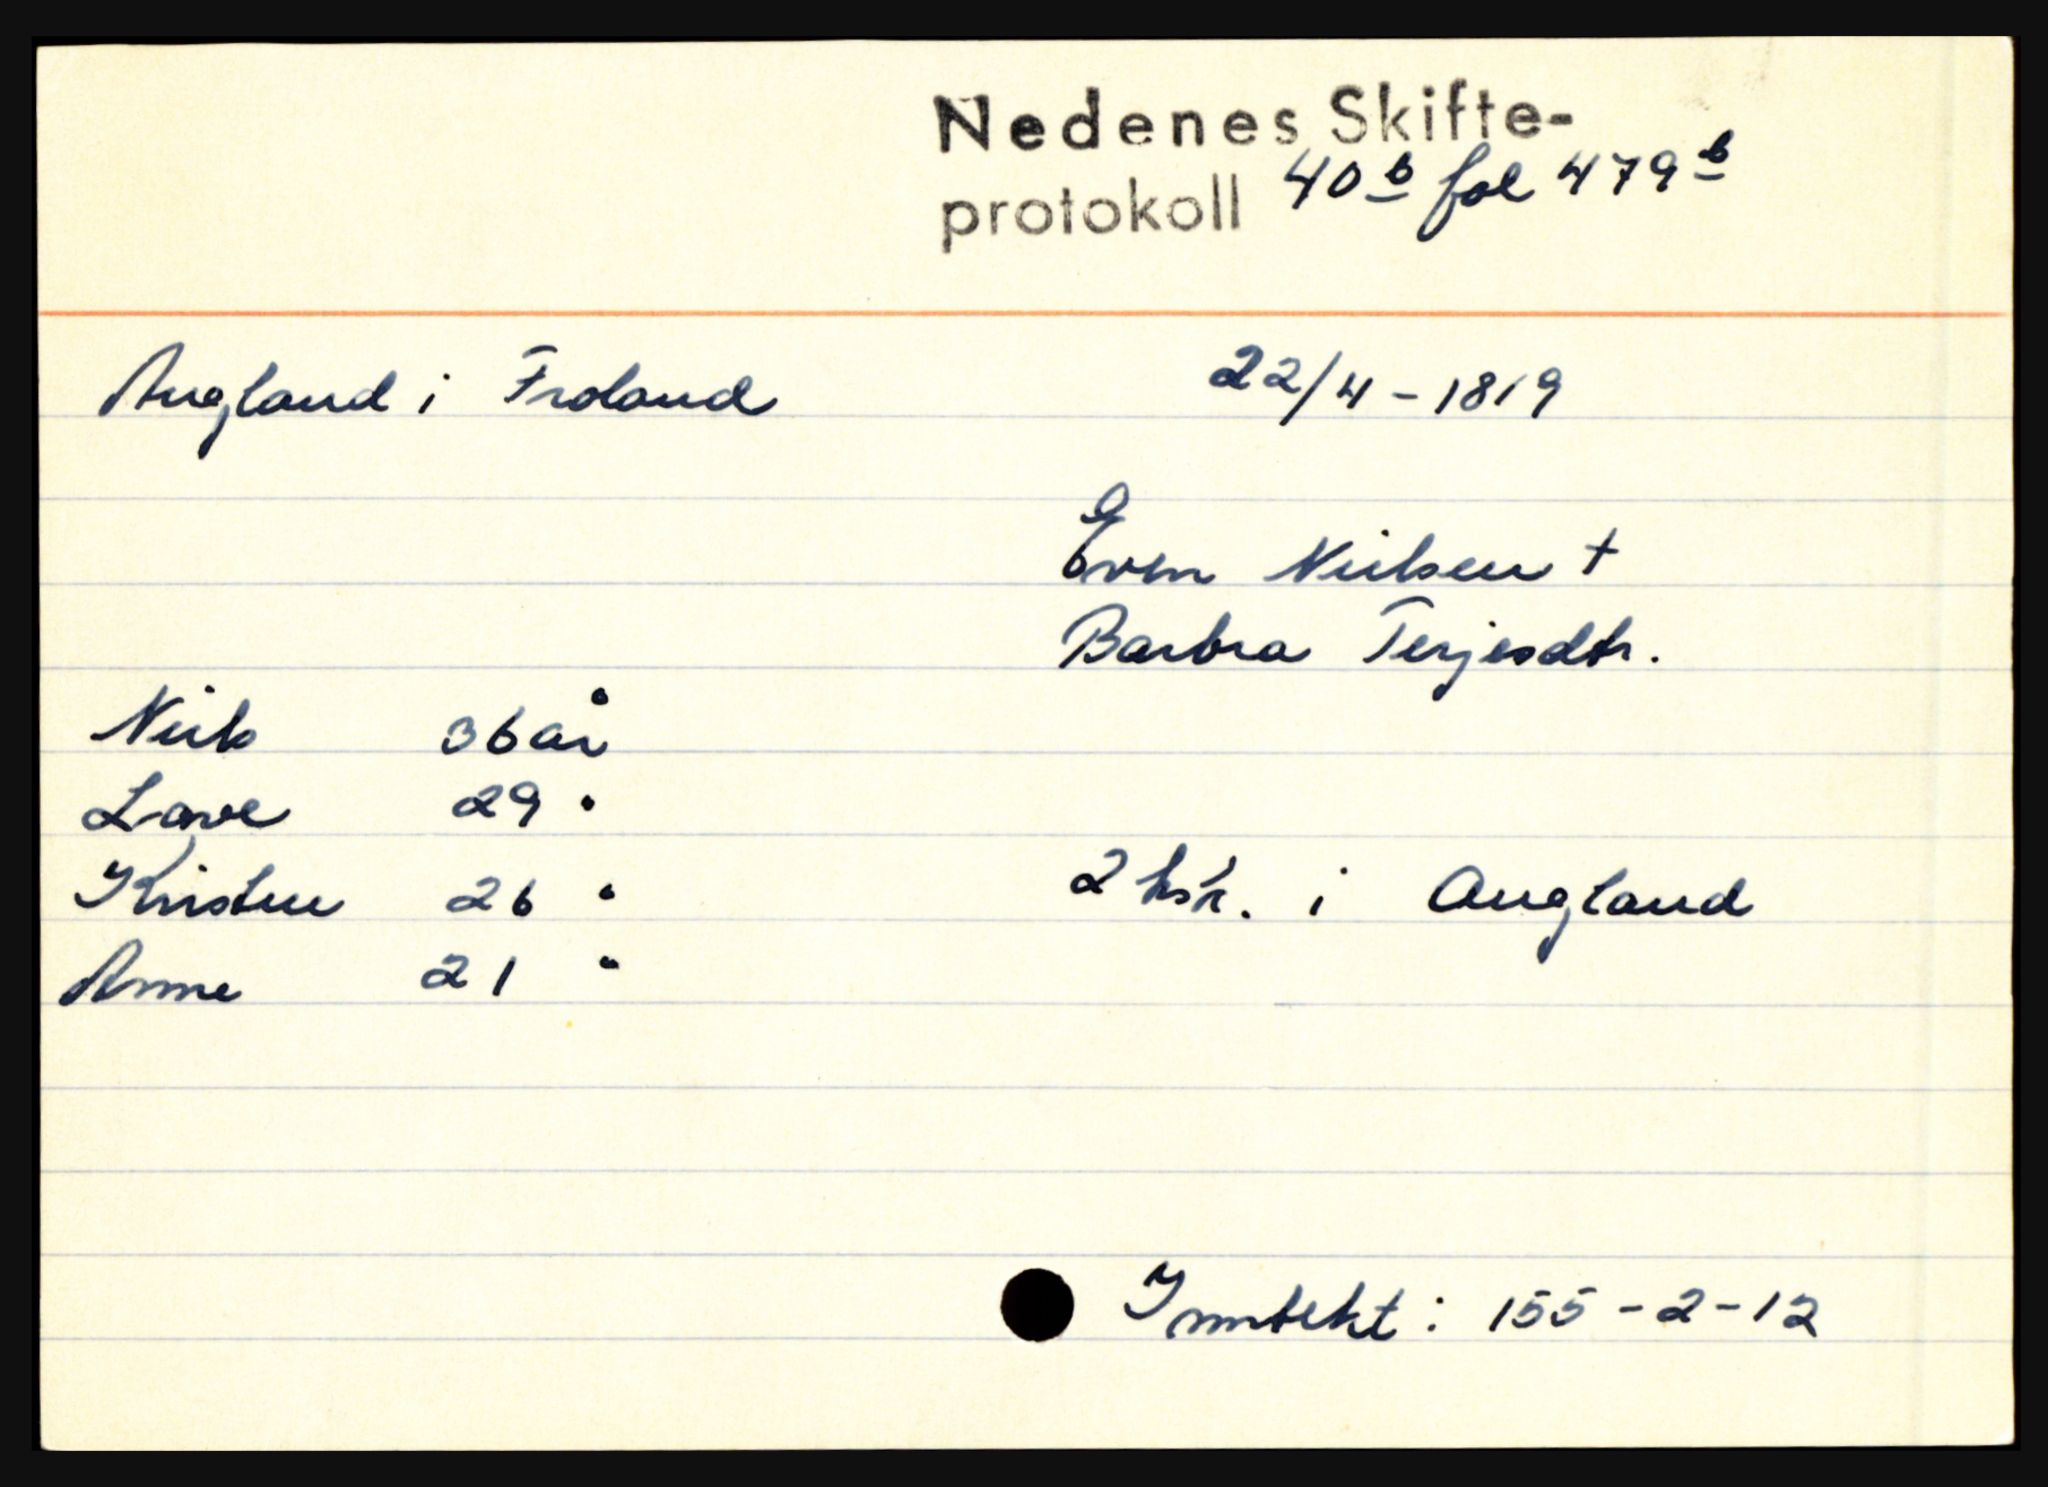 Nedenes Skifte-
protokoll 40b fol 479b
Augland i Froland 22/4 - 1819
Even Nielsen +
Barbra Terjesdtr.
Niels 36 år
Lave 29 "
Kristen 26 " 2 hsk. i Augland
Anne 21 "
Inntekt: 155-2-12